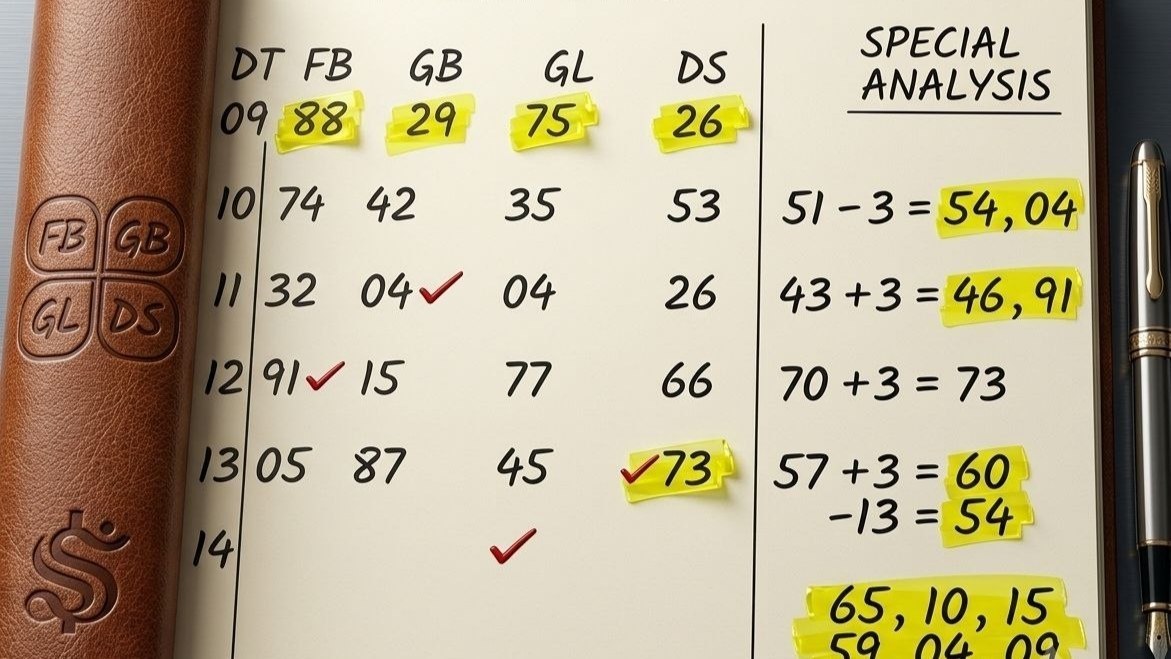 DT FB GB GL DS
09 88 29 75 26
10 74 42 35 53
11 32 04 04 26
12 91 15 77 66
13 05 87 45 73
14
SPECIAL
ANALYSIS
51 - 3 = 54, 04
43 + 3 = 46, 91
70 + 3 = 73
57 + 3 = 60
-13 = 54
65, 10, 15
59, 04, 09
FB GB
GL DS
$